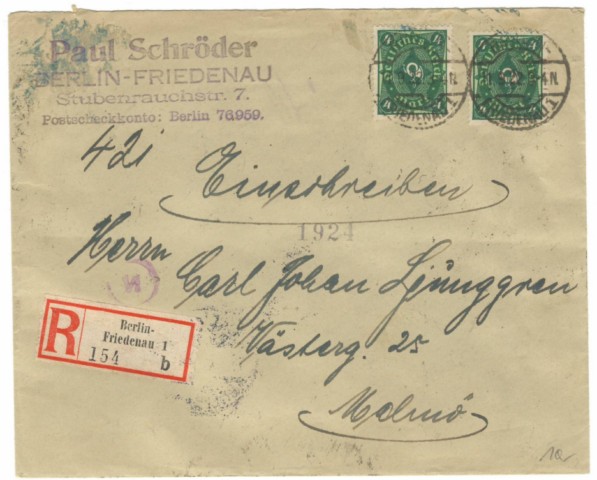 Paul Schröder
BERLIN-FRIEDENAU
Stubenrauchstr. 7.
Postscheckkonto: Berlin 76959.
421
Einschreiben
1924
Herrn
Carl Johan Ljunggren
R
Berlin-
Friedenau 1
154 b
Västerg. 25
Malmö